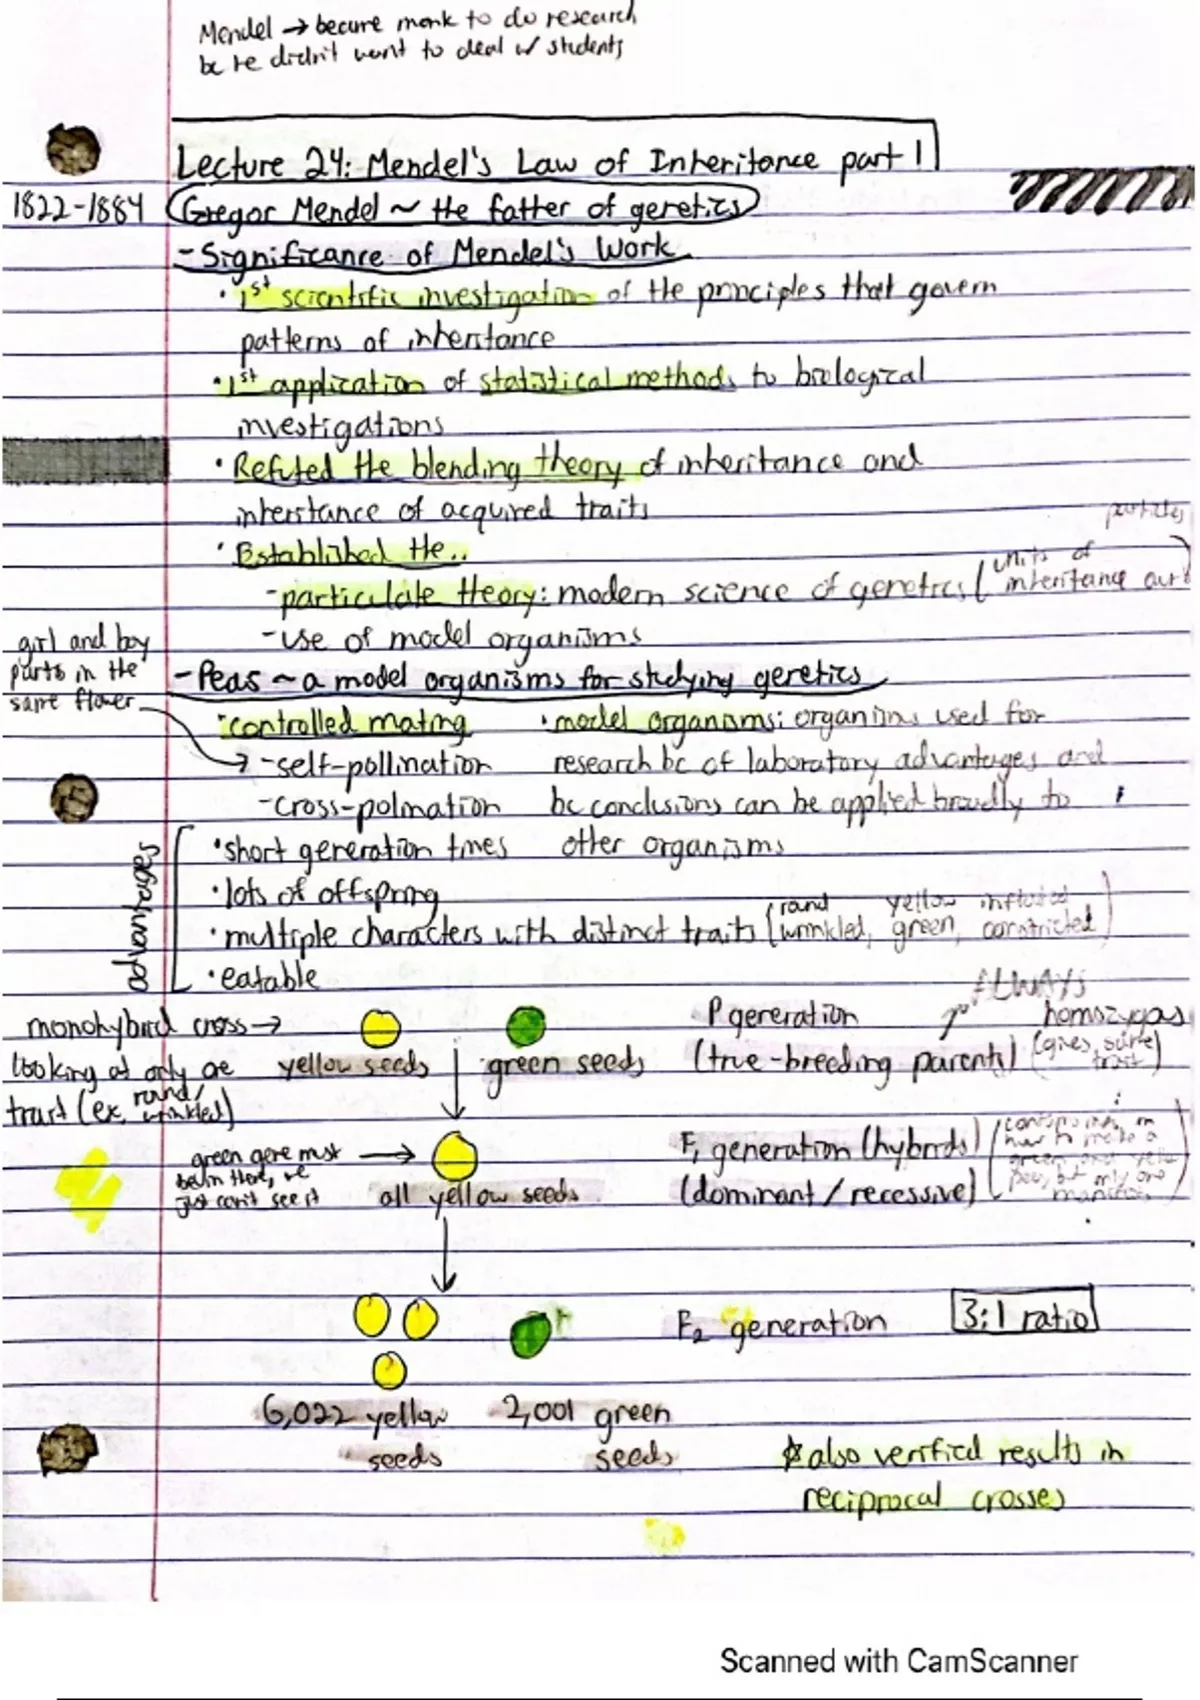 Mendel → became monk to do research
bc he didn't want to deal w/ students
Lecture 24: Mendel's Law of Inheritance part 1
1822-1884 Gregor Mendel ~ the father of genetics
- Significance of Mendel's Work
· 1st scientific investigation of the principles that govern
patterns of inheritance
· 1st application of statistical methods to biological
investigations
· Refuted the blending theory of inheritance and
inheritance of acquired traits
· Established the..
particles
units of
- particulate theory: modern science of genetics ( inheritance
- use of model organisms
girl and boy
parts in the
same flower
- Peas ~ a model organisms for studying genetics
· controlled mating
→ - self-pollination
- cross-polination
· model organisms: organisms used for
research bc of laboratory advantages and
bc conclusions can be applied broadly to
other organisms
advantages
· short generation times
· lots of offspring
· multiple characters with distinct traits (round wrinkled, yellow green, inflated constricted)
· eatable
monohybrid cross →
looking at only one
trait (ex. round/
wrinkled)
yellow seeds green seeds
P generation
(true-breeding parents)
ALWAYS
homozygos
(gives same
trait)
green gene must
be in there, we
just can't see it
→
all yellow seeds
F1 generation (hybrids)
(dominant / recessive)
how to make a
green and yellow
but only one
F2 generation 3:1 ratio
6,022 yellow
seeds
2,001 green
seeds
* also verified results in
reciprocal crosses
Scanned with CamScanner